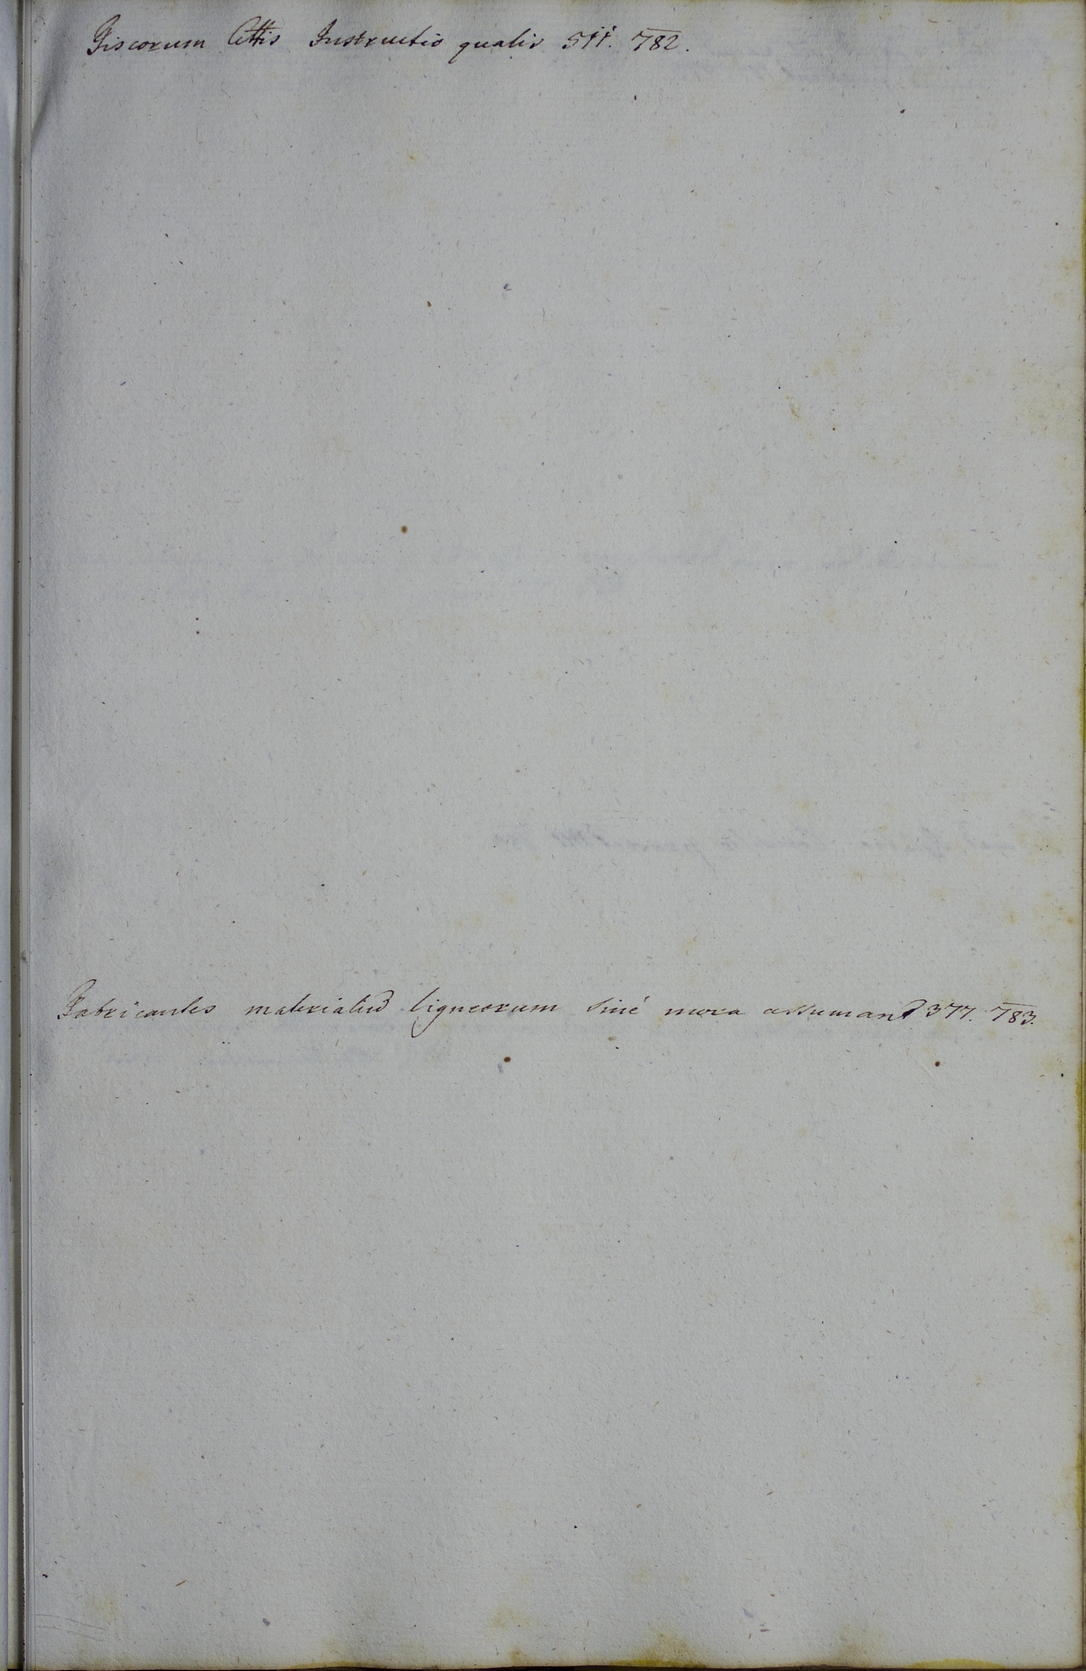 Fiscorum Cottis Instructio qualis 511. 782.
Fabricantes materialiũ ligneorum siné mora assumant 377. 783.